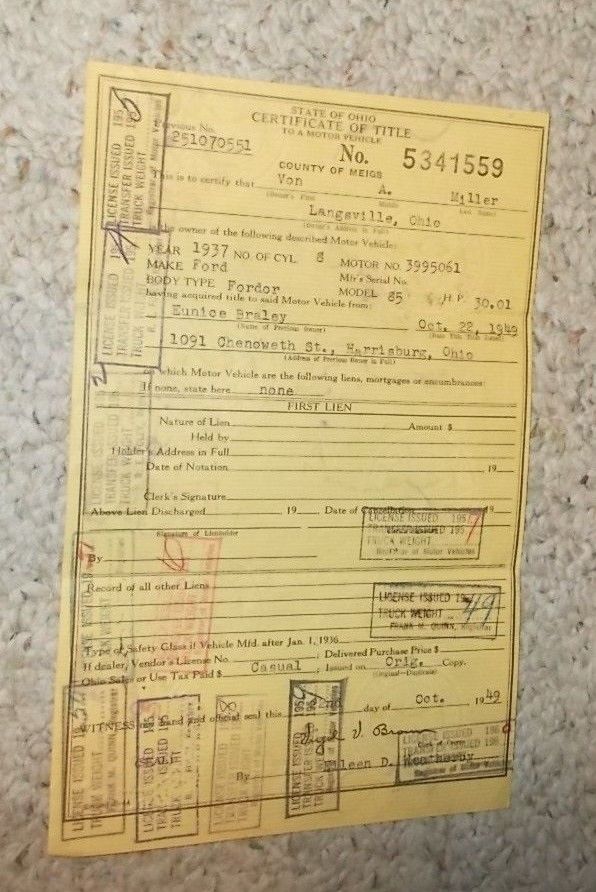 STATE OF OHIO
CERTIFICATE OF TITLE
TO A MOTOR VEHICLE
Previous No.
251070551
No. 5341559
COUNTY OF MEIGS
This is to certify that Von A. Miller
Langsville, Ohio
the owner of the following described Motor Vehicle:
YEAR 1937 NO. OF CYL. 8 MOTOR NO. 3995061
MAKE Ford Mfr's Serial No.
BODY TYPE Fordor MODEL 85 H. P. 30.01
having acquired title to said Motor Vehicle from:
Eunice Braley Oct. 22, 1949
(Name of Previous Owner)
1091 Chenoweth St., Harrisburg, Ohio
(Address of Previous Owner in Full)
on which Motor Vehicle are the following liens, mortgages or encumbrances:
If none, state here none
FIRST LIEN
Nature of Lien Amount $
Held by
Holder's Address in Full
Date of Notation 19
Clerk's Signature
Above Lien Discharged 19 Date of Cancellation 19
Signature of Lienholder
LICENSE ISSUED 195
TRANSFER ISSUED 195
TRUCK WEIGHT
Registrar of Motor Vehicles
By
Record of all other Liens
LICENSE ISSUED 19 49
TRUCK WEIGHT
FRANK M. QUINN, Registrar
Type of Safety Glass if Vehicle Mfd. after Jan. 1, 1936
If dealer, Vendor's License No. Casual Delivered Purchase Price $
Ohio Sales or Use Tax Paid $ Issued on Orig. Copy.
(Original—Duplicate)
WITNESS my hand and official seal this 22nd day of Oct. 1949
(SEAL)
By Eileen D. Weatherby
LICENSE ISSUED 195
TRANSFER ISSUED 195
TRUCK WEIGHT
Registrar of Motor Vehicles